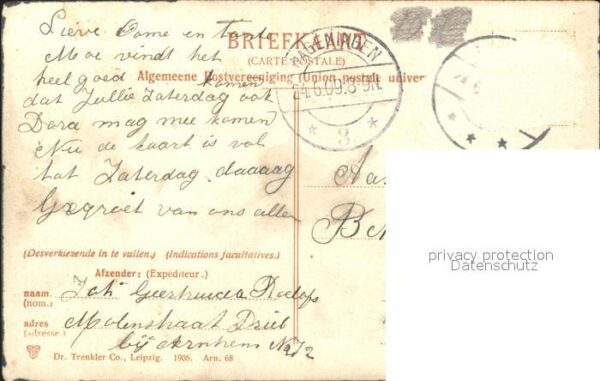 Lieve Oome en Tante
Moe vindt het
heel goed komen
dat Jullie Zaterdag ook
Dora mag mee komen
Nu de kaart is vol
tot Zaterdag daaaag
Gegroet van ons allen
BRIEFKAART
(CARTE POSTALE)
Algemeene Postvereeniging (Union postale univer
WAGENINGEN
24.6.09.8-9N.
8
24.6
Aan
Be
(Desverkiezende in te vullen.) (Indications facultatives.)
Afzender: (Expéditeur.)
naam (nom.) Joh Geertruida Roelofs
adres (adresse) Molenstraat Driel
bij Arnhem
Dr. Trenkler Co., Leipzig. 1906. Arn. 68
privacy protection
Datenschutz